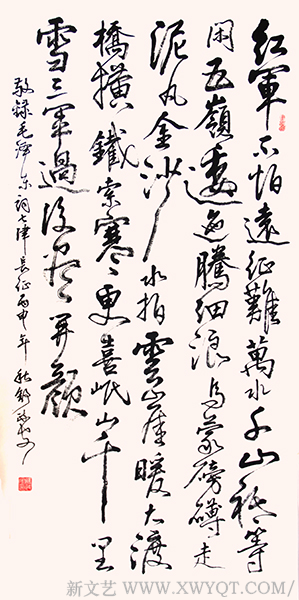 红軍不怕遠征難萬水千山祗等
闲五嶺逶迤騰细浪乌蒙磅礴走
泥丸金沙水拍雲崖暖大渡
橋横鐵索寒更喜岷山千里
雪三軍過后尽開颜
敬錄毛泽东詞七律長征丙申年秋
新文艺 WWW.XWYQT.COM/